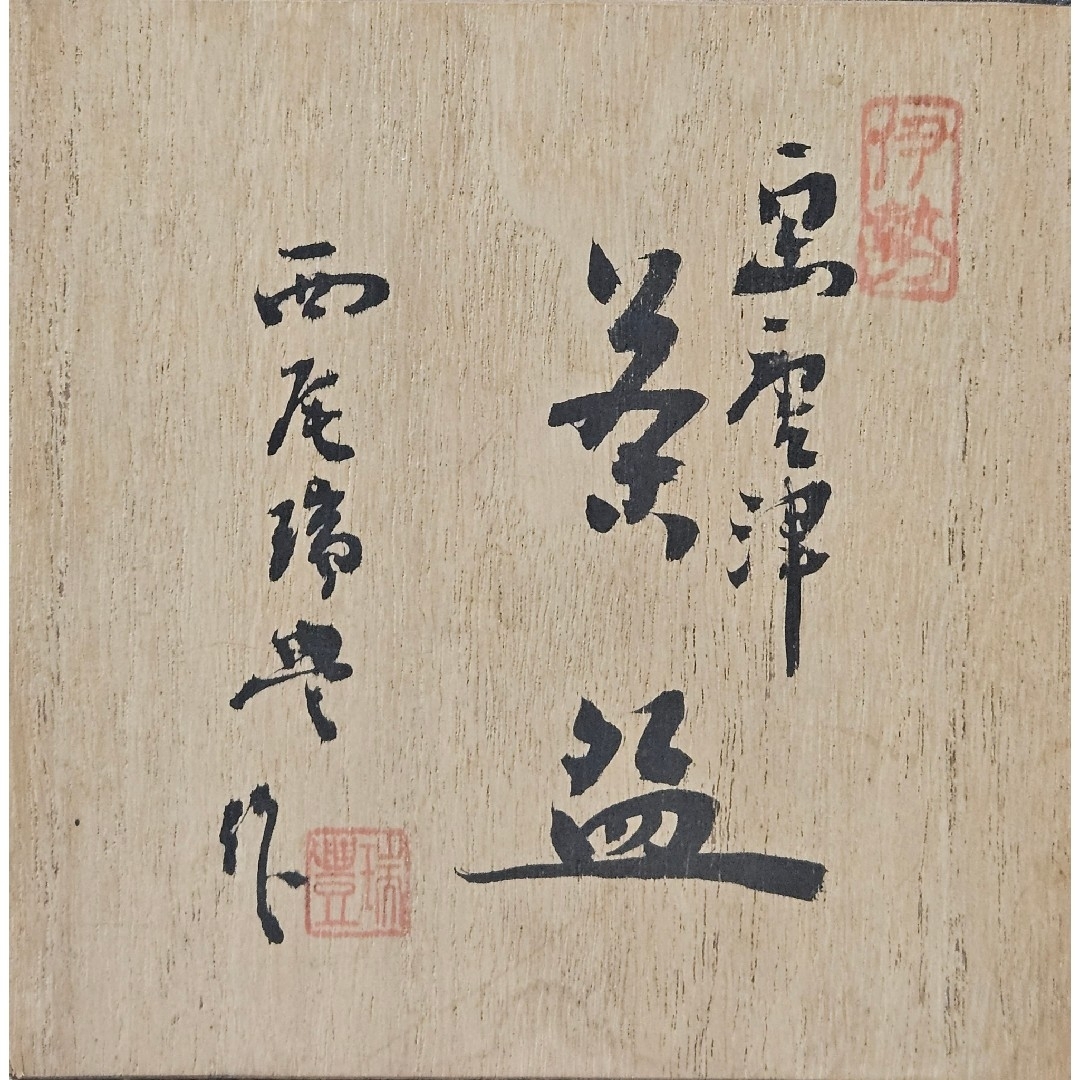 伊勢
黒唐津
茶盌
西尾瑞豊作
瑞豊